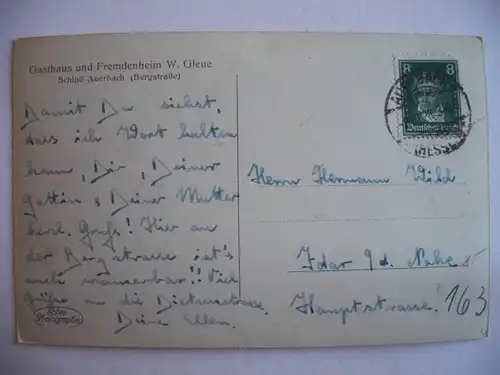 Gasthaus und Fremdenheim W. Gleue
Schloß-Auerbach (Bergstraße)
Damit Du siehst,
dass ich Wort halten
kann, Dir, Deiner
Gattin & Deiner Mutter
herzl. Gruß! Hier an
der Bergstrasse ist's
auch wunderbar!! Viel
Grüße an die
Deine Ellen.
Echte
Photographie
8 8
Deutsches Reich
(HESSEN)
Herrn Hermann Wild
Idar a. d. Nahe
Hauptstrasse. 163